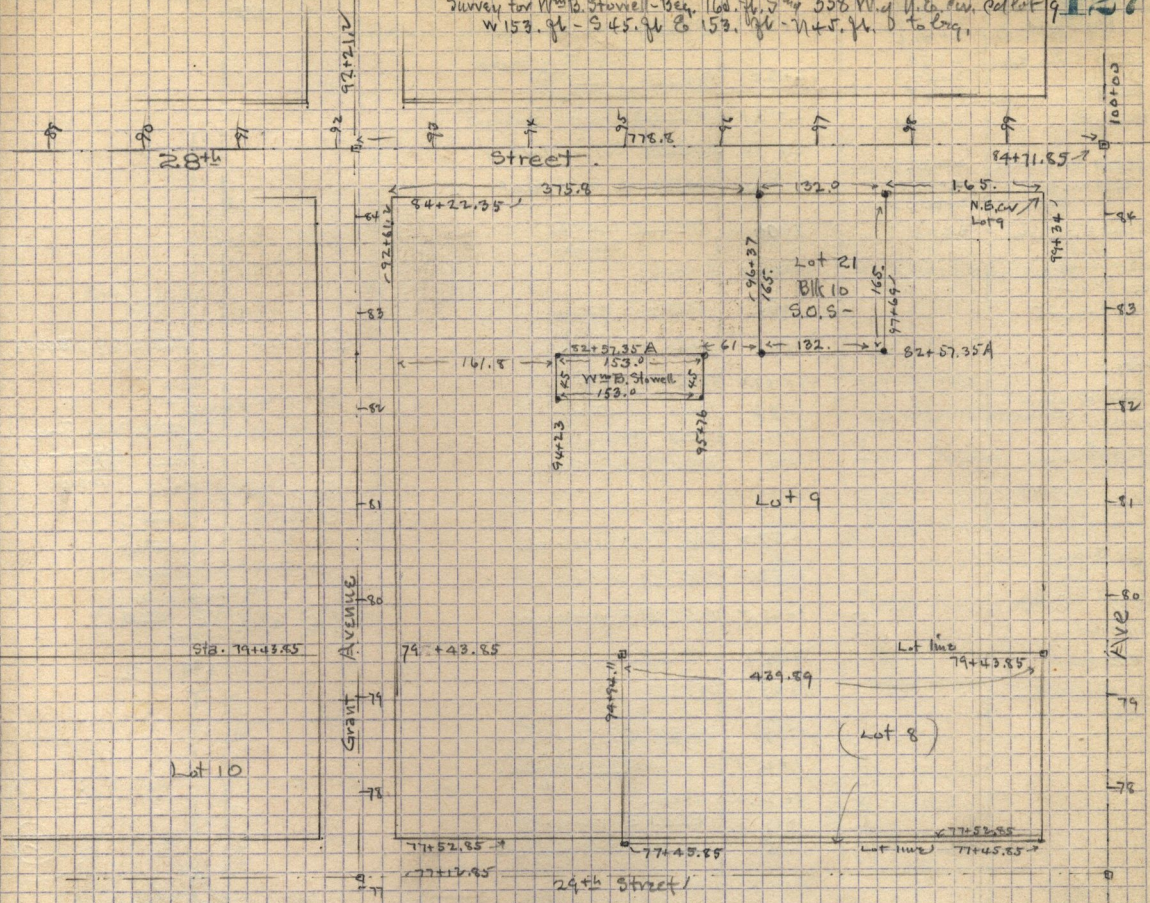 Survey for Wm B. Stowell - Beg. 165. ft. S & 358 W. of N.E. cor. of Lot 9
W 153. ft - S 45. ft E 153. ft - N 45. ft. to beg.
127
92+21.2
100+00
89
90
91
92
93
94
95
778.8
96
97
98
99
28th
Street.
84+71.85
375.8
132.0
165.
84+22.35
N.E. cor
Lot 9
84
92+61.2
99+34
84
96+37
165.
Lot 21
Blk 10
S.O.S-
165.
97+69
83
83
82+57.35 A
61
132.
82+57.35 A
161.8
153.0
45
Wm B. Stowell
45
153.0
82
82
94+23
95+76
Lot 9
81
81
80
80
Grant Avenue
Ave
Sta. 79+43.85
79+43.85
Lot line
79+43.85
439.89
94+94.11
79
79
(Lot 8)
Lot 10
78
78
77+52.85
77+52.85
77+45.85
Lot line
77+45.85
77+12.85
77
29th Street